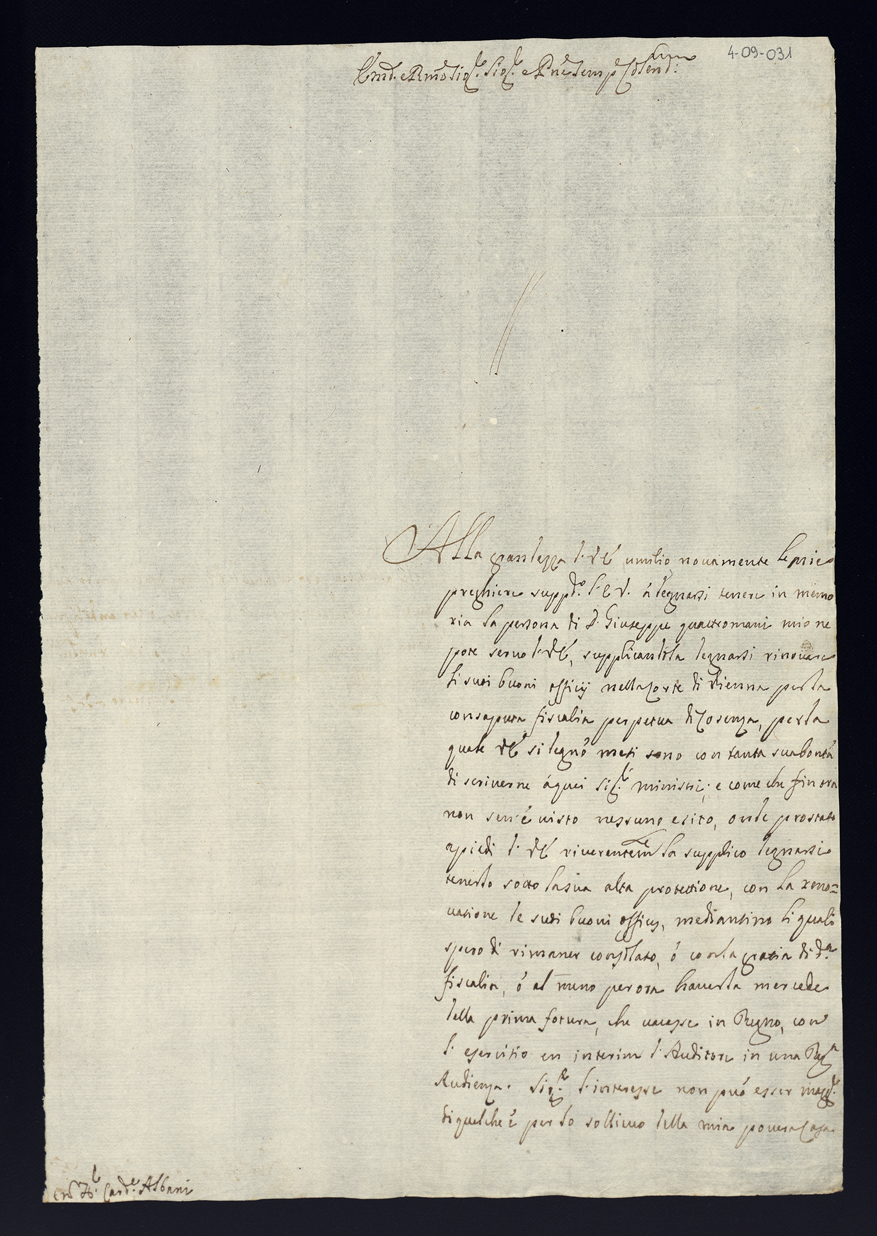 4-09-031
Em.o e R.mo Sig.r Sig.r e P.ne semp.e Col.mo
Alla grandezza di V.E. umilio novamente le mie
preghiere supp.do l'E.V. à degnarsi tenere in memo
ria la persona di D. Giuseppe quattromani mio ne
pote servo di V.E., supplicandola degnarsi rinovare
li suoi buoni officij nella Corte di Vienna per la
consaputa fiscalia perpetua di Cosenza, per la
quale V.E. si degnò mesi sono con tanta sua bontà
di scriverne à quei Sig.ri ministri; e come che fin ora
non sen'è visto nessuno esito, onde prostrato
a piedi di V.E. riverentem.te la supplico degnarsi
tenerlo sotto la sua alta protettione, con la reno=
vatione de suoi buoni officij, mediantino li quali
spero di rimaner consolato, ò con la gratia di d.a
fiscalia, ò al meno per ora haverla mercede
della prima fortura, che vacasse in Regno, con
l'esercitio en interim d'Auditore in una Reg.a
Audienza. Sig.re l'interesse non può esser magg.re
di quel che è per lo sollievo della mia povera Casa
Em.o S.r Card.le Albani